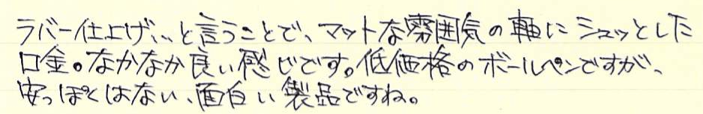 ラバー仕上げ…と言うことで、マットな雰囲気の軸にシュッとした
口金。なかなか良い感じです。低価格のボールペンですが、
安っぽくはない、面白い製品ですね。